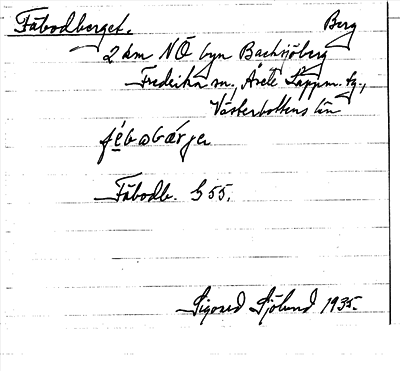 Fäbodberget. Berg
2 km NÖ byn Backsjöberg
Fredrika sn., Åsele Lappm. tg.,
Västerbottens län
Fäbodb. G 55.
Sigvard Sjölund 1935.